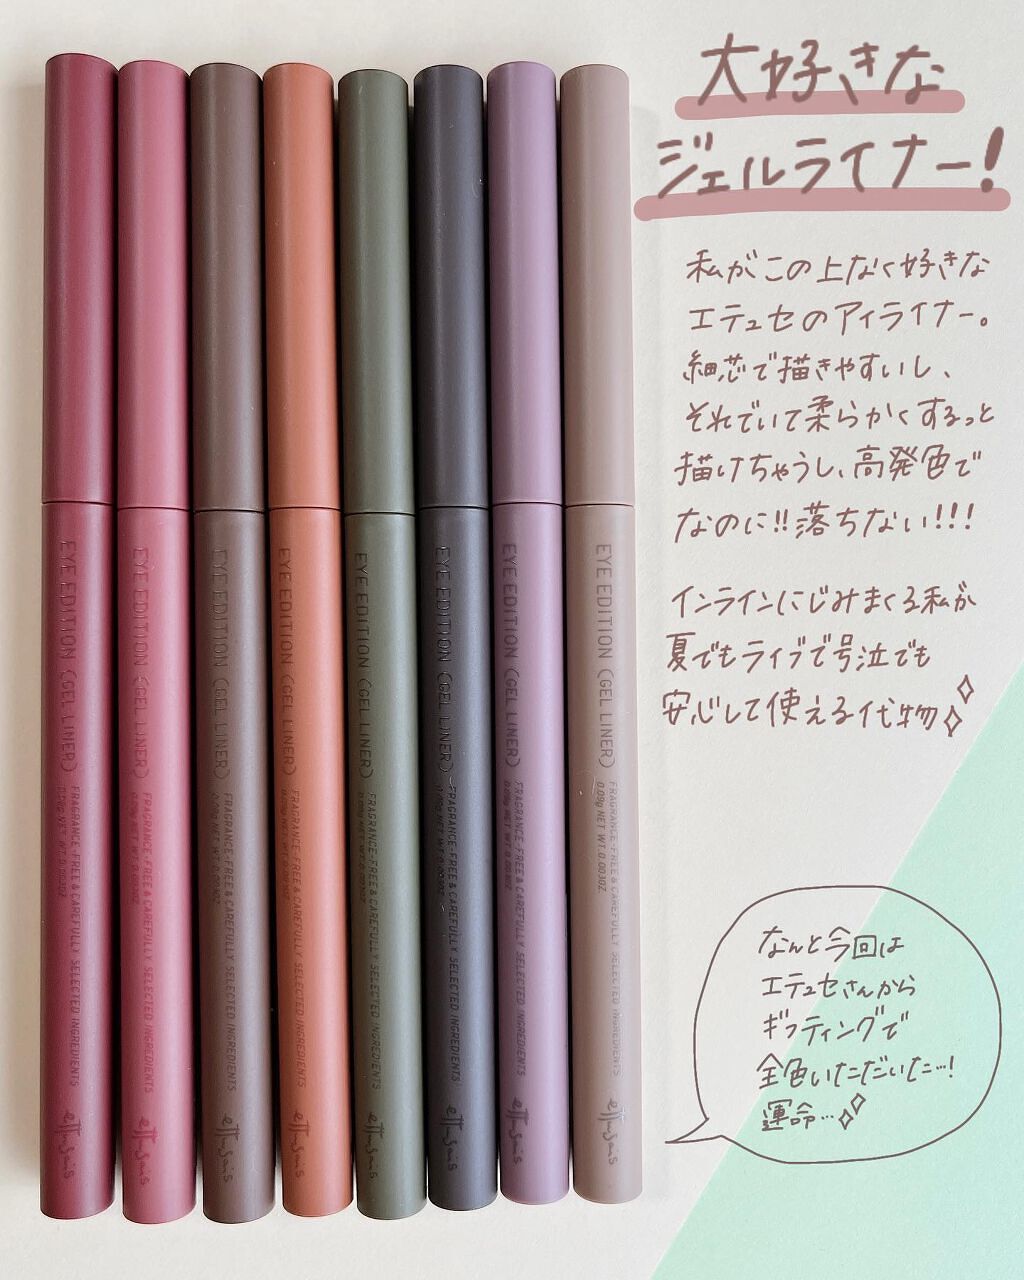 大好きな
ジェルライナー!
私がこの上なく好きな
エテュセのアイライナー。
細芯で描きやすいし、
それでいて柔らかくするっと
描けちゃうし、高発色で
なのに!!落ちない!!!
インラインにじみまくる私が
夏でもライブで号泣でも
安心して使える代物
なんと今回は
エテュセさんから
ギフティングで
全色いただいた…!
運命…
EYE EDITION (GEL LINER)
FRAGRANCE-FREE & CAREFULLY SELECTED INGREDIENTS
0.09g NET WT. 0.003OZ.
ettusais
EYE EDITION (GEL LINER)
FRAGRANCE-FREE & CAREFULLY SELECTED INGREDIENTS
0.09g NET WT. 0.003OZ.
ettusais
EYE EDITION (GEL LINER)
FRAGRANCE-FREE & CAREFULLY SELECTED INGREDIENTS
0.09g NET WT. 0.003OZ.
ettusais
EYE EDITION (GEL LINER)
FRAGRANCE-FREE & CAREFULLY SELECTED INGREDIENTS
0.09g NET WT. 0.003OZ.
ettusais
EYE EDITION (GEL LINER)
FRAGRANCE-FREE & CAREFULLY SELECTED INGREDIENTS
0.09g NET WT. 0.003OZ.
ettusais
EYE EDITION (GEL LINER)
FRAGRANCE-FREE & CAREFULLY SELECTED INGREDIENTS
0.09g NET WT. 0.003OZ.
ettusais
EYE EDITION (GEL LINER)
FRAGRANCE-FREE & CAREFULLY SELECTED INGREDIENTS
0.09g NET WT. 0.003OZ.
ettusais
EYE EDITION (GEL LINER)
FRAGRANCE-FREE & CAREFULLY SELECTED INGREDIENTS
0.09g NET WT. 0.003OZ.
ettusais